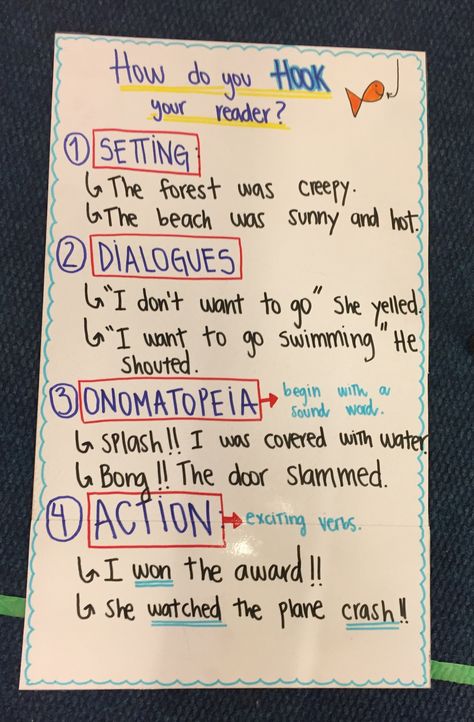 How do you HOOK
your reader?
① SETTING
↳ The forest was creepy.
↳ The beach was sunny and hot.
② DIALOGUES
↳ "I don't want to go" She yelled.
↳ "I want to go swimming" He
shouted.
③ ONOMATOPEIA → begin with a
sound word.
↳ Splash!! I was covered with water
↳ Bong!! The door slammed.
④ ACTION → exciting verbs.
↳ I won the award!!
↳ She watched the plane crash!!